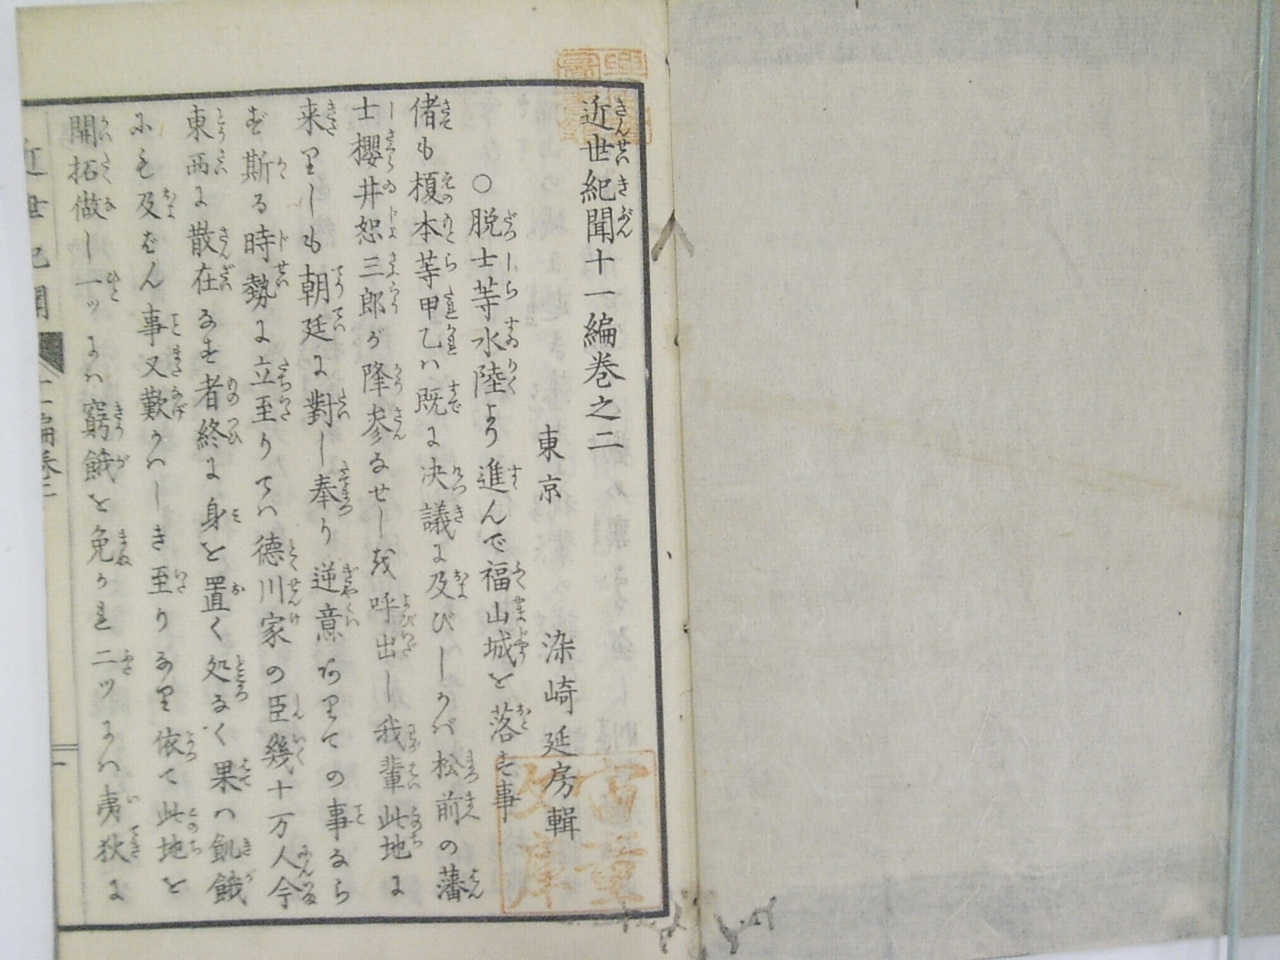 近世紀聞十一編巻之二
東京 染崎延房輯
○脱士等水陸より進んで福山城を落す事
偖も榎本等甲乙ハ既に决議に及びしかバ松前の藩
士櫻井恕三郎が降参なせしを呼出し我輩此地に
来りしも朝廷に對し奉り逆意ありての事なら
ず斯る時勢に立至りてハ德川家の臣幾十万人今
東西に散在なす者終に身を置く処なく果ハ飢餓
にも及ばん事又歎かハしき至りなり依て此地を
開拓做し一ッにハ窮餓を免かれ二ッにハ夷狄に
近世紀聞 十一編巻二 一